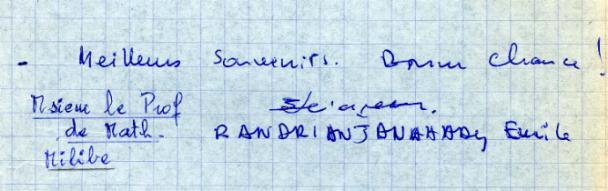 - Meilleurs Souvenirs. Bonne Chance!
Msieur le Prof
de Math. RANDRIANJANAHARY Emile
Milibe